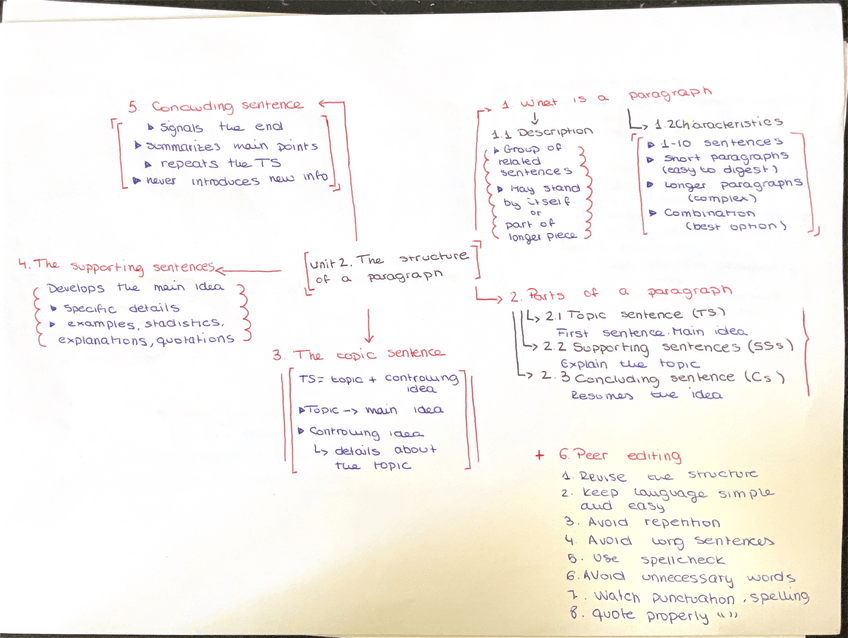 unit 2. The structure
of a paragraph
1 What is a paragraph
1.1 Description
▸ Group of
related
sentences
▸ May stand
by itself
or
part of
longer piece
1.2 Characteristics
▸ 1-10 sentences
▸ Short paragraphs
(easy to digest)
▸ Longer paragraphs
(complex)
▸ Combination
(best option)
2. Parts of a paragraph
2.1 Topic sentence (TS)
First sentence. Main idea
2.2 Supporting sentences (SSs)
Explain the topic
2.3 Concluding sentence (Cs)
Resumes the idea
3. The topic sentence
TS = topic + controlling
idea
▸ Topic -> main idea
▸ Controlling idea
↳ details about
the topic
4. The supporting sentences
Develops the main idea
▸ specific details
▸ examples, stadistics,
explanations, quotations
5. Concluding sentence
▸ signals the end
▸ summarizes main points
▸ repeats the TS
▸ never introduces new info
+ 6. Peer editing
1. Revise the structure
2. Keep language simple
and easy
3. Avoid repetition
4. Avoid long sentences
5. Use spellcheck
6. Avoid unnecessary words
7. Watch punctuation, spelling
8. quote properly “ ”